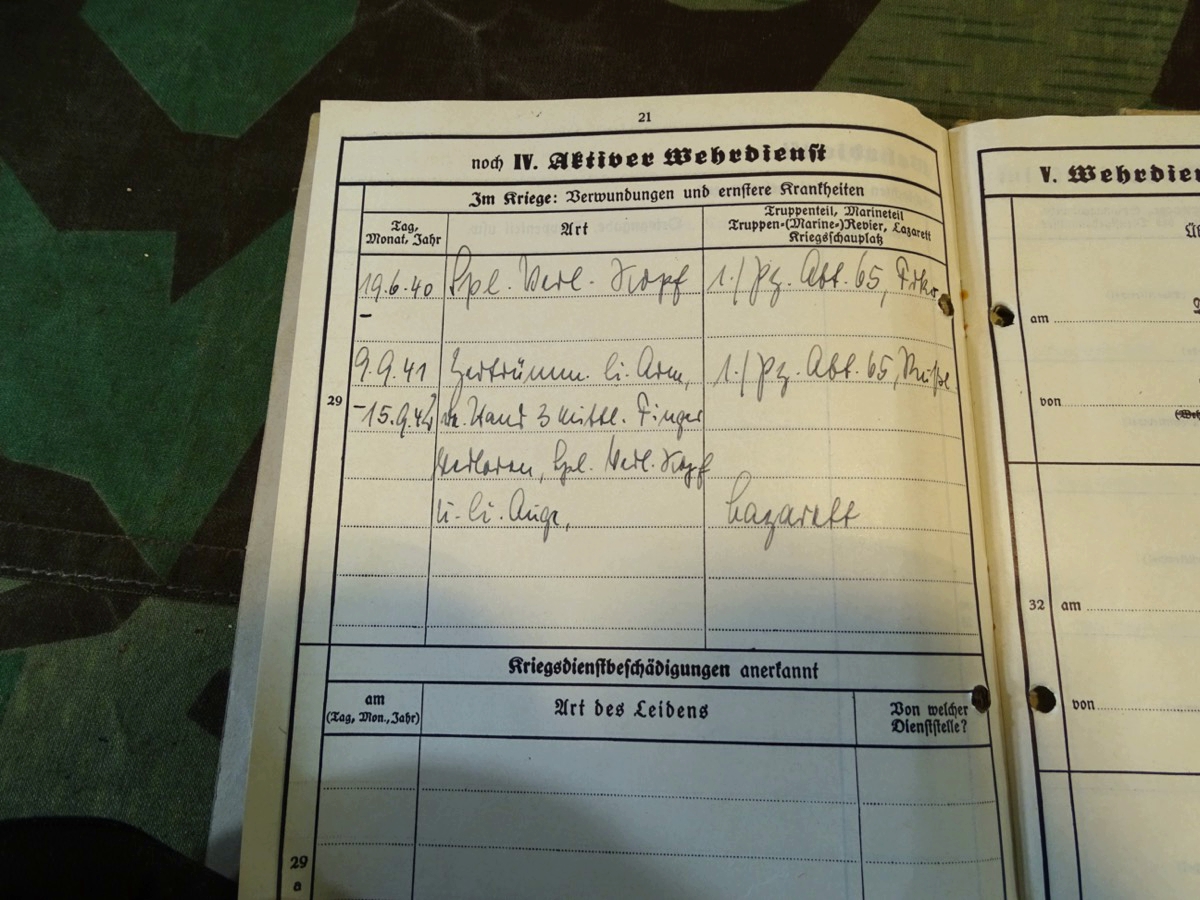 21
noch IV. Aktiver Wehrdienst
Im Kriege: Verwundungen und ernstere Krankheiten
Tag, Monat, Jahr
Art
Truppenteil, Marineteil
Truppen-(Marine-)Revier, Lazarett
Kriegsschauplatz
19.6.40 Spl. Verl. Kopf 1./Pz. Abt. 65,
29
9.9.41 Zertrümm. li. Arm, 1./Pz. Abt. 65,
-15.9. Hand 3 mittl. Finger
verloren, Spl. Verl. Kopf
u. li. Auge, Lazarett
Kriegsdienstbeschädigungen anerkannt
am
(Tag, Mon., Jahr)
Art des Leidens
Von welcher
Dienststelle?
29
a
V.
am
von
32 am
von